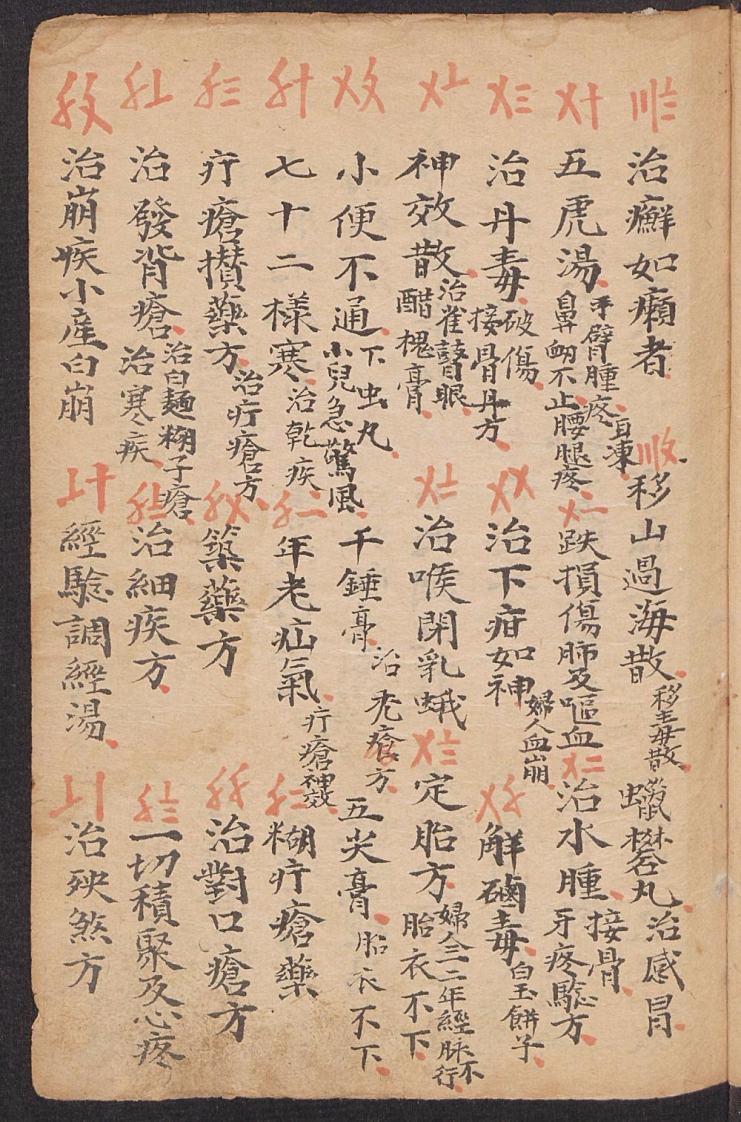 〣〨 治癬如癩者 〣〩 移山過海散 移毒散 蠟礬丸 治感冒
〤十 五虎湯 手臂腫疼 鼻衂不止腰腿疼 〤一 跌損傷肺及嘔血 〤二 治水腫 接骨 牙疼驗方
〤三 治丹毒 破傷 接骨丹方 〤〤 治下疳如神 婦人血崩 〤〥 解磠毒 白玉餅子
〤〦 神效散 治雀瞽眼 醋槐膏 〤〧 治喉閉乳蛾 〤〨 定胎方 婦人三二年經脉不行 胎衣不下
〤〩 小便不通 下虫丸 小兒急驚風 千錘膏 治禿瘡方 五尖膏 胎衣不下
〥十 七十二樣寒 治乾疾 〥一 年老疝氣 疔瘡神效 〥二 糊疔瘡藥
〥三 疔瘡攅藥方 治疔瘡方 〥〤 箓藥方 〥〥 治對口瘡方
〥〦 治發背瘡 治白麺糊子瘡 治寒疾 〥〧 治細疾方 〥〨 一切積聚及心疼
〥〩 治崩疾小產白崩 〦十 經驗調經湯 〦〡 治殃煞方